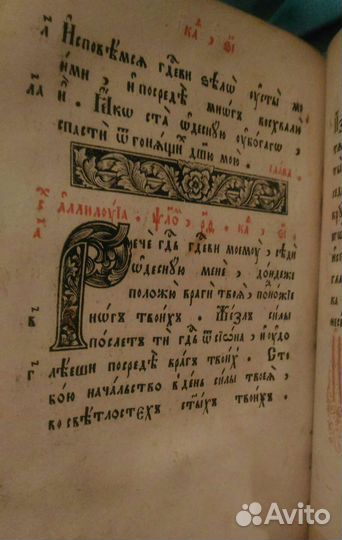 к҃а , ѳ҃і
л҃ Исповѣмся гд҇еви ѕѣлѡ̀ ѹ҆сты̀ мо
и́ми , и҆ посредѣ̀ мно́гъ восхвалю̀
л҃а и҆̀ . Ꙗ҆́кѡ ста̀ ѡ҆десну́ю ѹ҆бо́гагѡ ,
спастѝ ѿ гоня́щих дш҃у мою̀ .
сла́ва .
а҆ллилꙋ́їа . ѱа́лѡ́м , р҃ѳ . к҃а ,
Речѐ гд҇ь гд҇еви моемꙋ̀ , сѣдѝ
ѡ҆десну́ю менѐ , до́ндеже
положꙋ̀ врагѝ твоѧ̀ , подно́жїе
в҃ ногъ твои́хъ . Же́злъ си́лы
по́слетъ ти гд҇ь ѿ сїѡ́на , и҆ ѹ҆до
г҃ лѣе́ши посредѣ̀ враг твои́хъ . Сто
бо́ю нача́льство в де́нь си́лы твоеѧ̀ ,
во свѣ́тлостехъ ст҃ы́хъ твои́хъ .
Avito